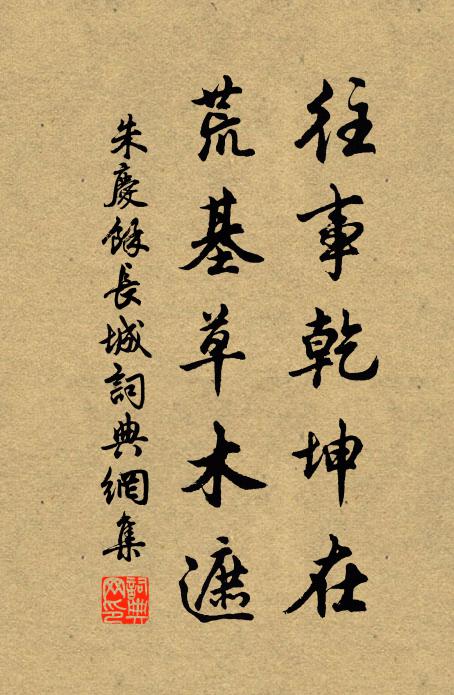 往事乾坤在
荒基草木遮
朱慶餘長城詞典網集
詞典網印